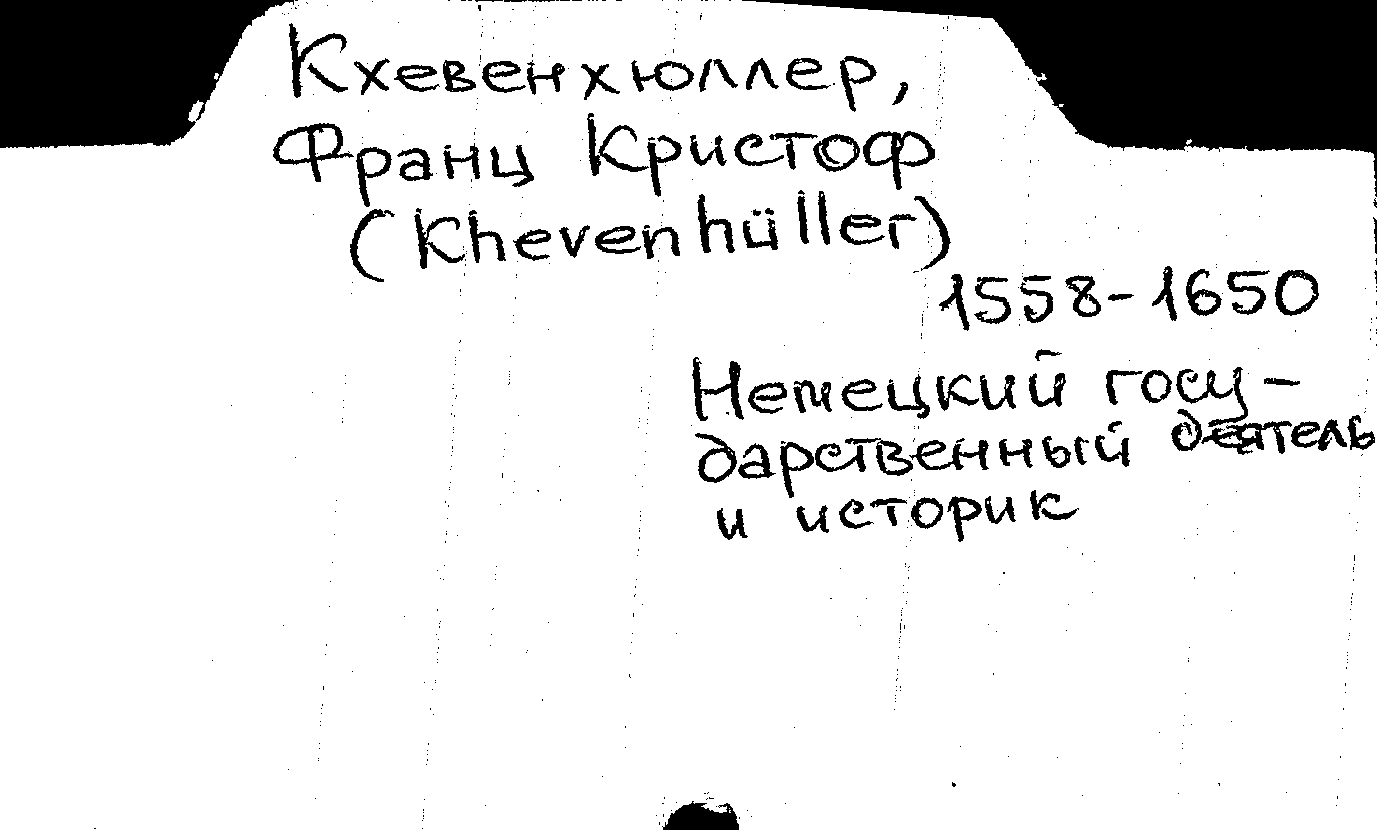 Кхевенхюллер,
Франц Кристоф
(Khevenhüller)
1558-1650
Немецкий госу-
дарственный деятель
и историк